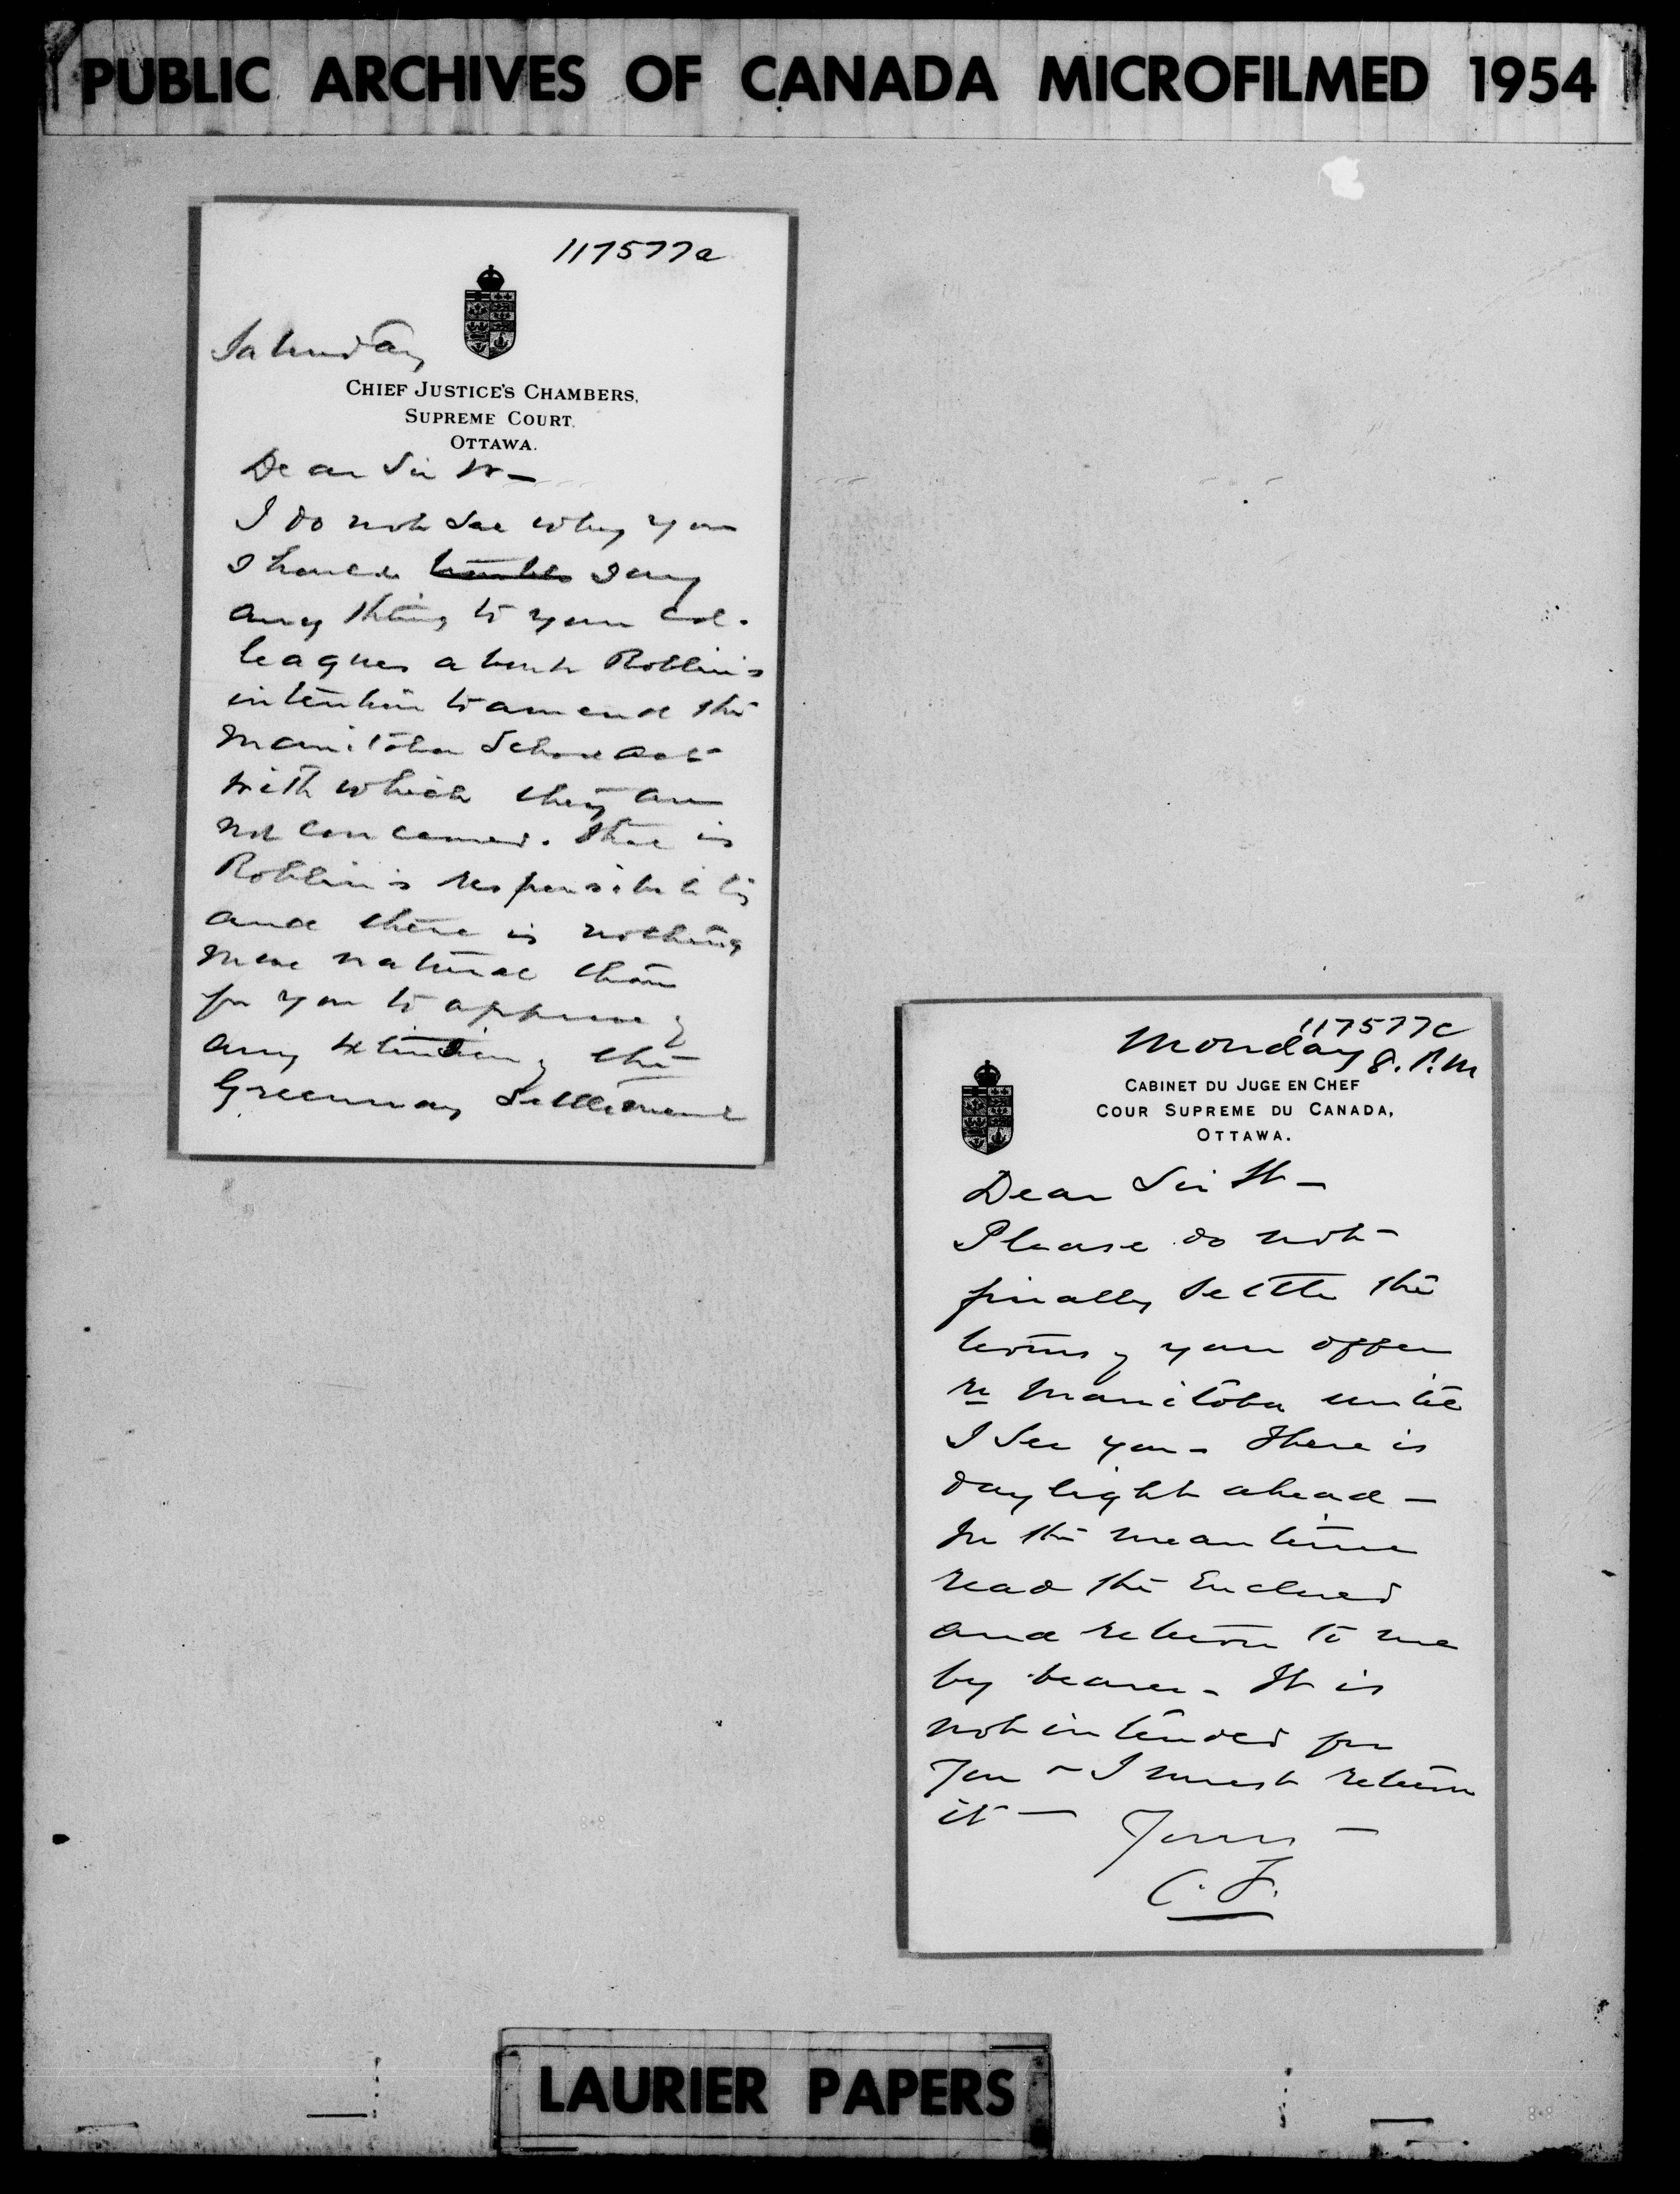 PUBLIC ARCHIVES OF CANADA MICROFILMED 1954
117577a
Saturday
CHIEF JUSTICE'S CHAMBERS,
SUPREME COURT,
OTTAWA.
Dear Sir W—
I do not see why you
should trouble say
any thing to your col-
leagues about Roblin's
intention to amend the
Manitoba School Act
with which they are
not concerned. That is
Roblin's responsibility
and there is nothing
more natural than
for you to approve of
any extension of the
Greenway Settlement
117577c
Monday 8. P.M
CABINET DU JUGE EN CHEF
COUR SUPREME DU CANADA,
OTTAWA.
Dear Sir W—
Please do not
finally settle the
terms of your offer
re Manitoba until
I see you - There is
daylight ahead —
In the mean time
read the Enclosed
and return to me
by bearer - It is
not intended for
you - I must return
it — Yours —
C. F.
LAURIER PAPERS